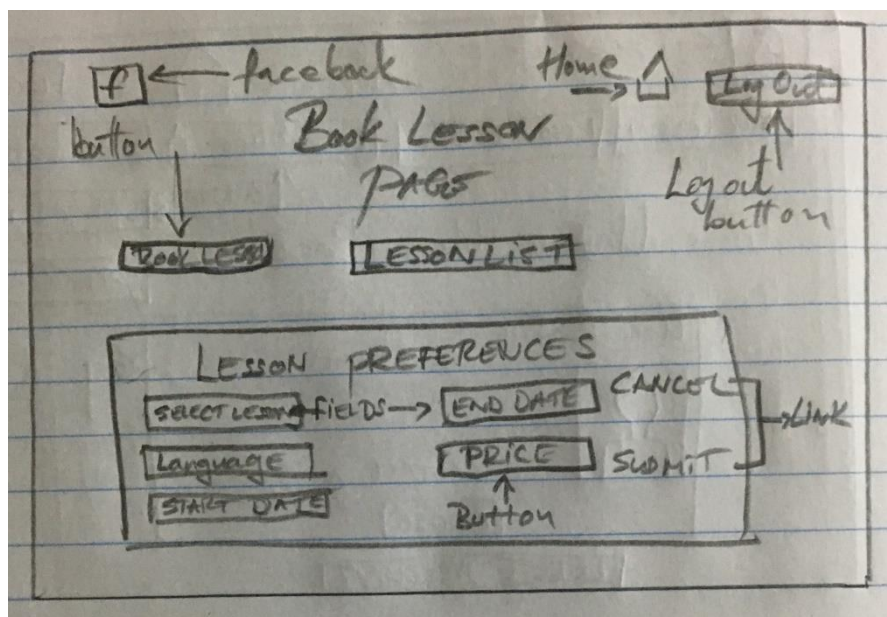 f ← facebook Home → Log Out
button Book Lesson
PAGE Logout
button
Book LESSON LESSON LIST
LESSON PREFERENCES
SELECT LESSON FIELDS → END DATE CANCEL
→ LINK
Language PRICE SUBMIT
START DATE Button